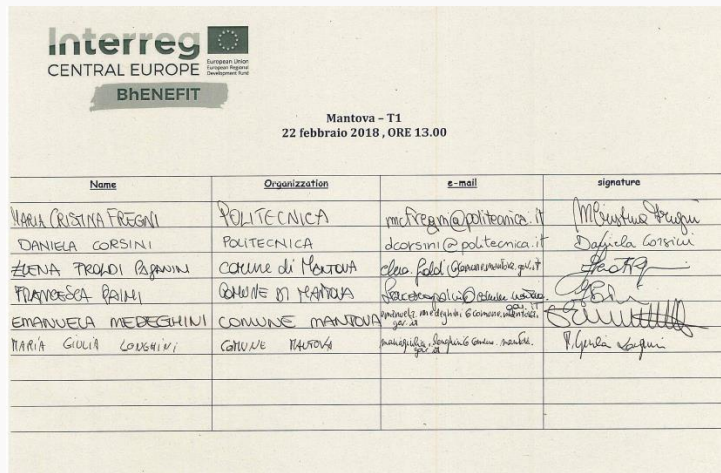 Interreg
CENTRAL EUROPE
European Union
European Regional
Development Fund
BhENEFIT
Mantova – T1
22 febbraio 2018 , ORE 13.00
Name Organizzation e-mail signature
MARIA CRISTINA FREGNI POLITECNICA mcfregni@politecnica.it
DANIELA CORSINI POLITECNICA dcorsini@politecnica.it Daniela Corsini
ELENA FROLDI PAGANINI comune di MANTOVA
FRANCESCA PAINI COMUNE DI MANTOVA
EMANUELA MEDEGHINI COMUNE MANTOVA emanuela.medeghini@comune.mantova.
gov.it
MARIA GIULIA LONGHINI COMUNE MANTOVA mariagiulia.longhini@comune.mantova.
gov.it